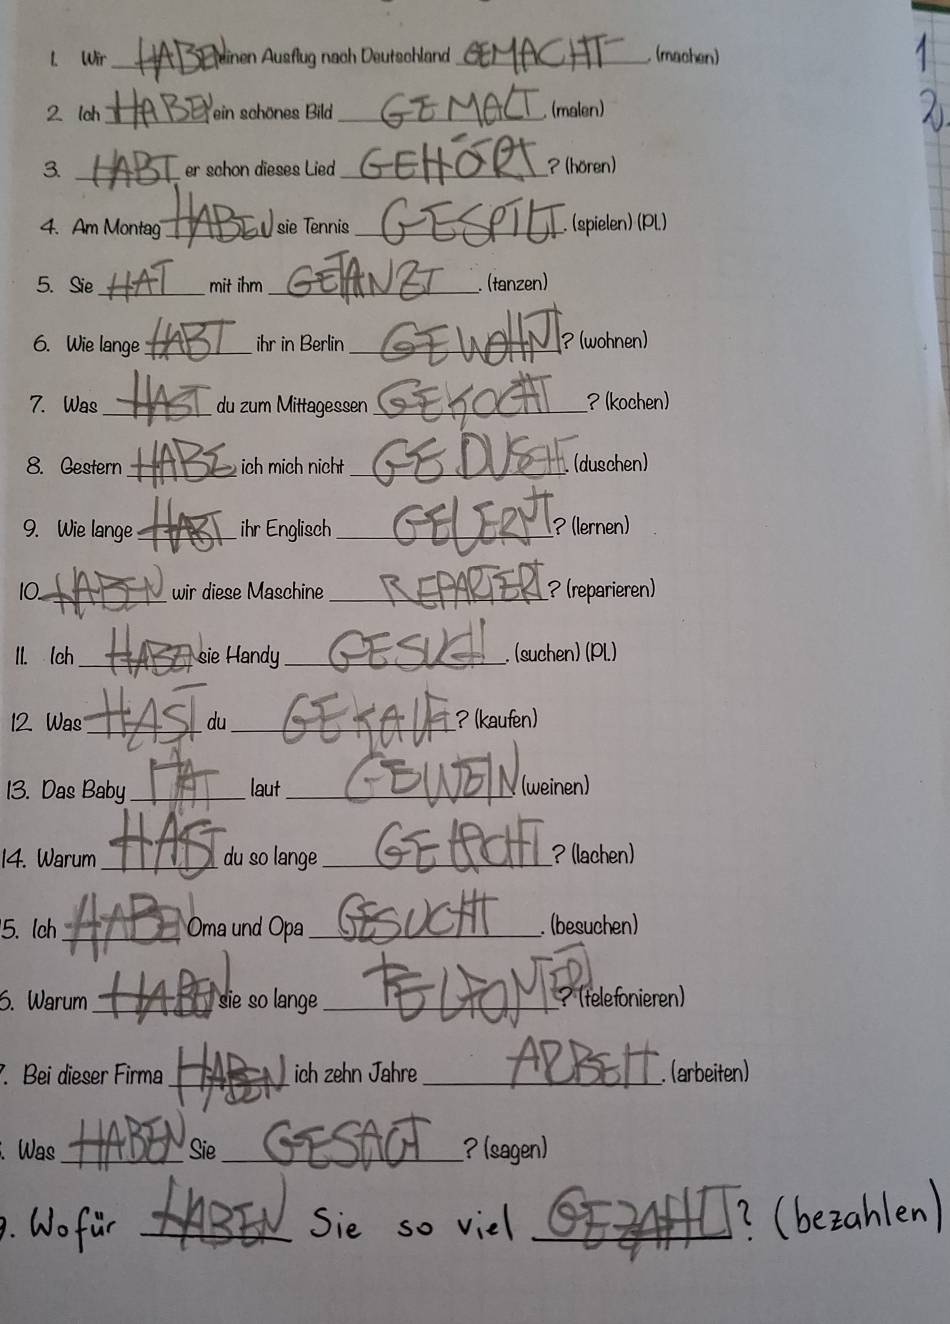 1. Wir HABEN einen Ausflug nach Deutschland GEMACHT. (machen)
2. Ich HABEN ein schönes Bild GEMALT. (malen)
3. HABT er schon dieses Lied GEHÖRT? (hören)
4. Am Montag HABEN sie Tennis GESPIELT. (spielen) (Pl.)
5. Sie HAT mit ihm GETANZT. (tanzen)
6. Wie lange HABT ihr in Berlin GEWOHNT? (wohnen)
7. Was HAST du zum Mittagessen GEKOCHT? (kochen)
8. Gestern HABE ich mich nicht GEDUSCH. (duschen)
9. Wie lange HABT ihr Englisch GELERNT? (lernen)
10. HABEN wir diese Maschine REPARIERT? (reparieren)
11. Ich HABEN sie Handy GESUCH. (suchen) (Pl.)
12. Was HAST du GEKAUF? (kaufen)
13. Das Baby HAT laut GEWEIN (weinen)
14. Warum HAST du so lange GELACHT? (lachen)
5. Ich HABEN Oma und Opa GESUCHT. (besuchen)
6. Warum HABEN sie so lange ? (telefonieren)
7. Bei dieser Firma HABEN ich zehn Jahre ARBEIT. (arbeiten)
. Was HABEN Sie GESAGT? (sagen)
9. Wofür HABEN Sie so viel GEZAHLT? (bezahlen)
1
2.